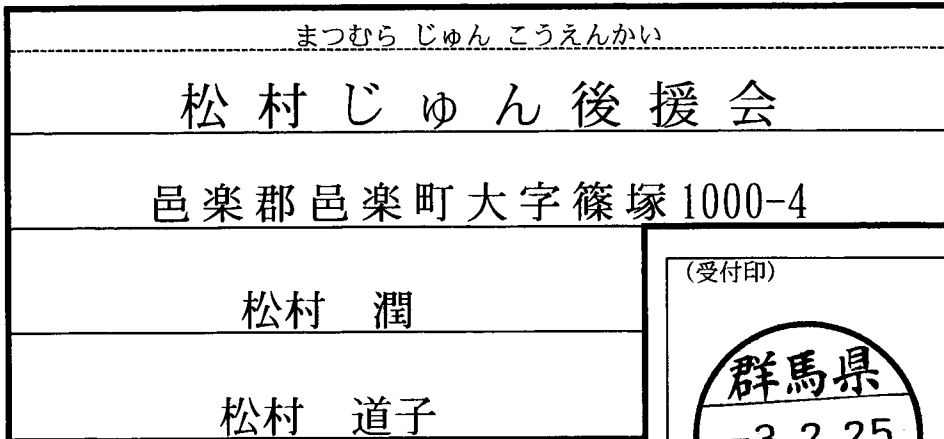 まつむら じゅん こうえんかい
松村じゅん後援会
邑楽郡邑楽町大字篠塚1000-4
松村 潤
松村 道子
(受付印)
群馬県
-3.2.25